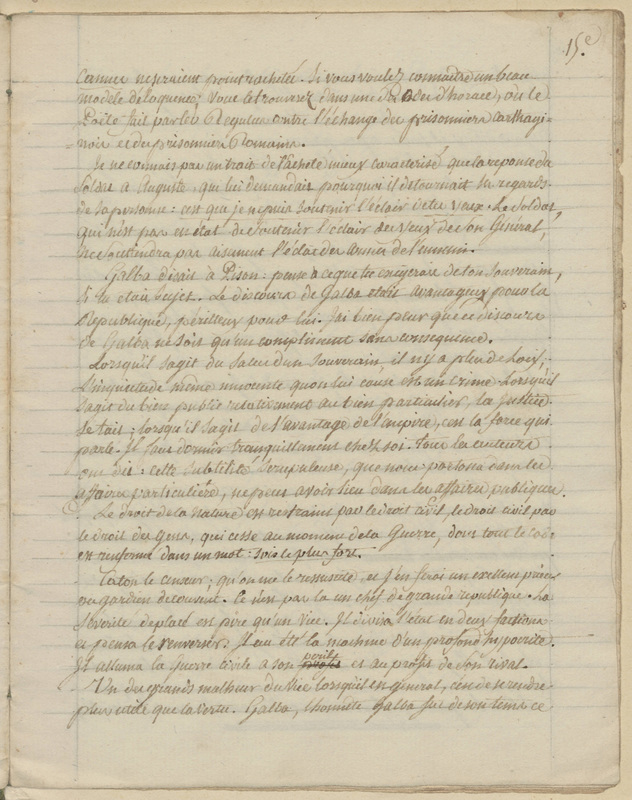 15.e
Cannes ne seraient point rachetés. Si vous voulez connaitre un beau
modele d'eloquence, vous le trouverez dans une des Odes d'horace, où le
Poëte fait parler Regulus contre l'échange des prisonniers Carthagi-
nois et des prisonniers Romains.
Je ne connais pas un trait de lâcheté mieux caracterisé que la reponse du
Soldat à Auguste, qui lui demandait pourquoi il detournait ses regards
de sa personne : c'est que je ne puis soutenir l'éclair de tes yeux. Le Soldat,
qui n'est pas en état de soutenir l'éclair des yeux de son Général,
ne soutiendra pas aisement l'éclat des armes de l'ennemi.
Galba disait à Pison : pense à ce que tu exigerais de ton Souverain,
si tu étais sujet. Le discours de Galba était avantageux pour la
Republique, périlleux pour lui. J'ai bien peur que ce discours
de Galba ne soit qu'un compliment sans consequence.
Lorsqu'il s'agit du salut d'un Souverain, il n'y a plus de Loix;
l'inquietude même innocente qu'on lui cause est un crime. Lorsqu'il
s'agit du bien public relativement au bien particulier, la justice
se tait : lorsqu'il s'agit de l'avantage de l'empire, c'est la force qui
parle. Il faut dormir tranquillement chez soi. Tous les auteurs
ont dit : cette subtilité scrupuleuse, que nous portons dans les
affaires particulières, ne peut avoir lieu dans les affaires publiques.
Le droit de la nature est restraint par le droit civil, le droit civil par
le droit des gens, qui cesse au moment de la Guerre, dont tout le code
est renfermé dans un mot : sois le plus fort.
Caton le censeur, qu'on me le ressuscite, et j'en ferai un excellent prieur
ou gardien de couvent. Ce n'est pas là un chef de grande republique. La
sévérité deplacée est pire qu'un vice. Il divisa l'état en deux factions
et pensa le renverser. Il eut été la machine d'un profond hypocrite.
Il alluma la Guerre civile à son peril et au profit de son rival.
Un des grands malheurs du vice lorsqu'il est général, c'est de se rendre
plus utile que la vertu. Galba, l'honnête Galba fut de son tems ce